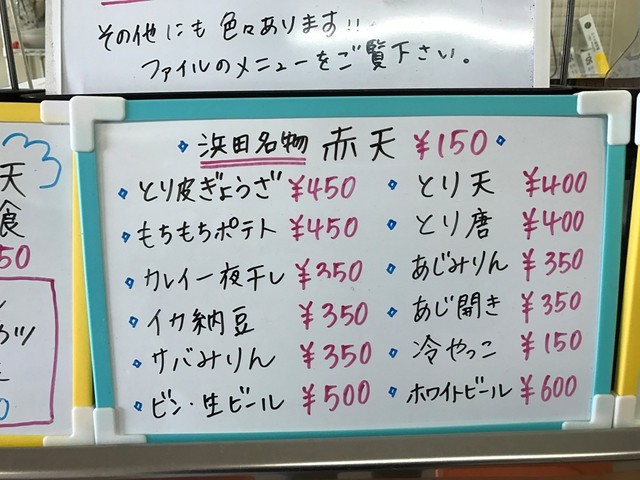 その他にも色々あります!!
ファイルのメニューをご覧下さい。
浜田名物 赤天 ¥150
とり皮ぎょうざ ¥450
もちもちポテト ¥450
カレイ一夜干し ¥350
イカ納豆 ¥350
サバみりん ¥350
ビン・生ビール ¥500
とり天 ¥400
とり唐 ¥400
あじみりん ¥350
あじ開き ¥350
冷やっこ ¥150
ホワイトビール ¥600
天
食
50